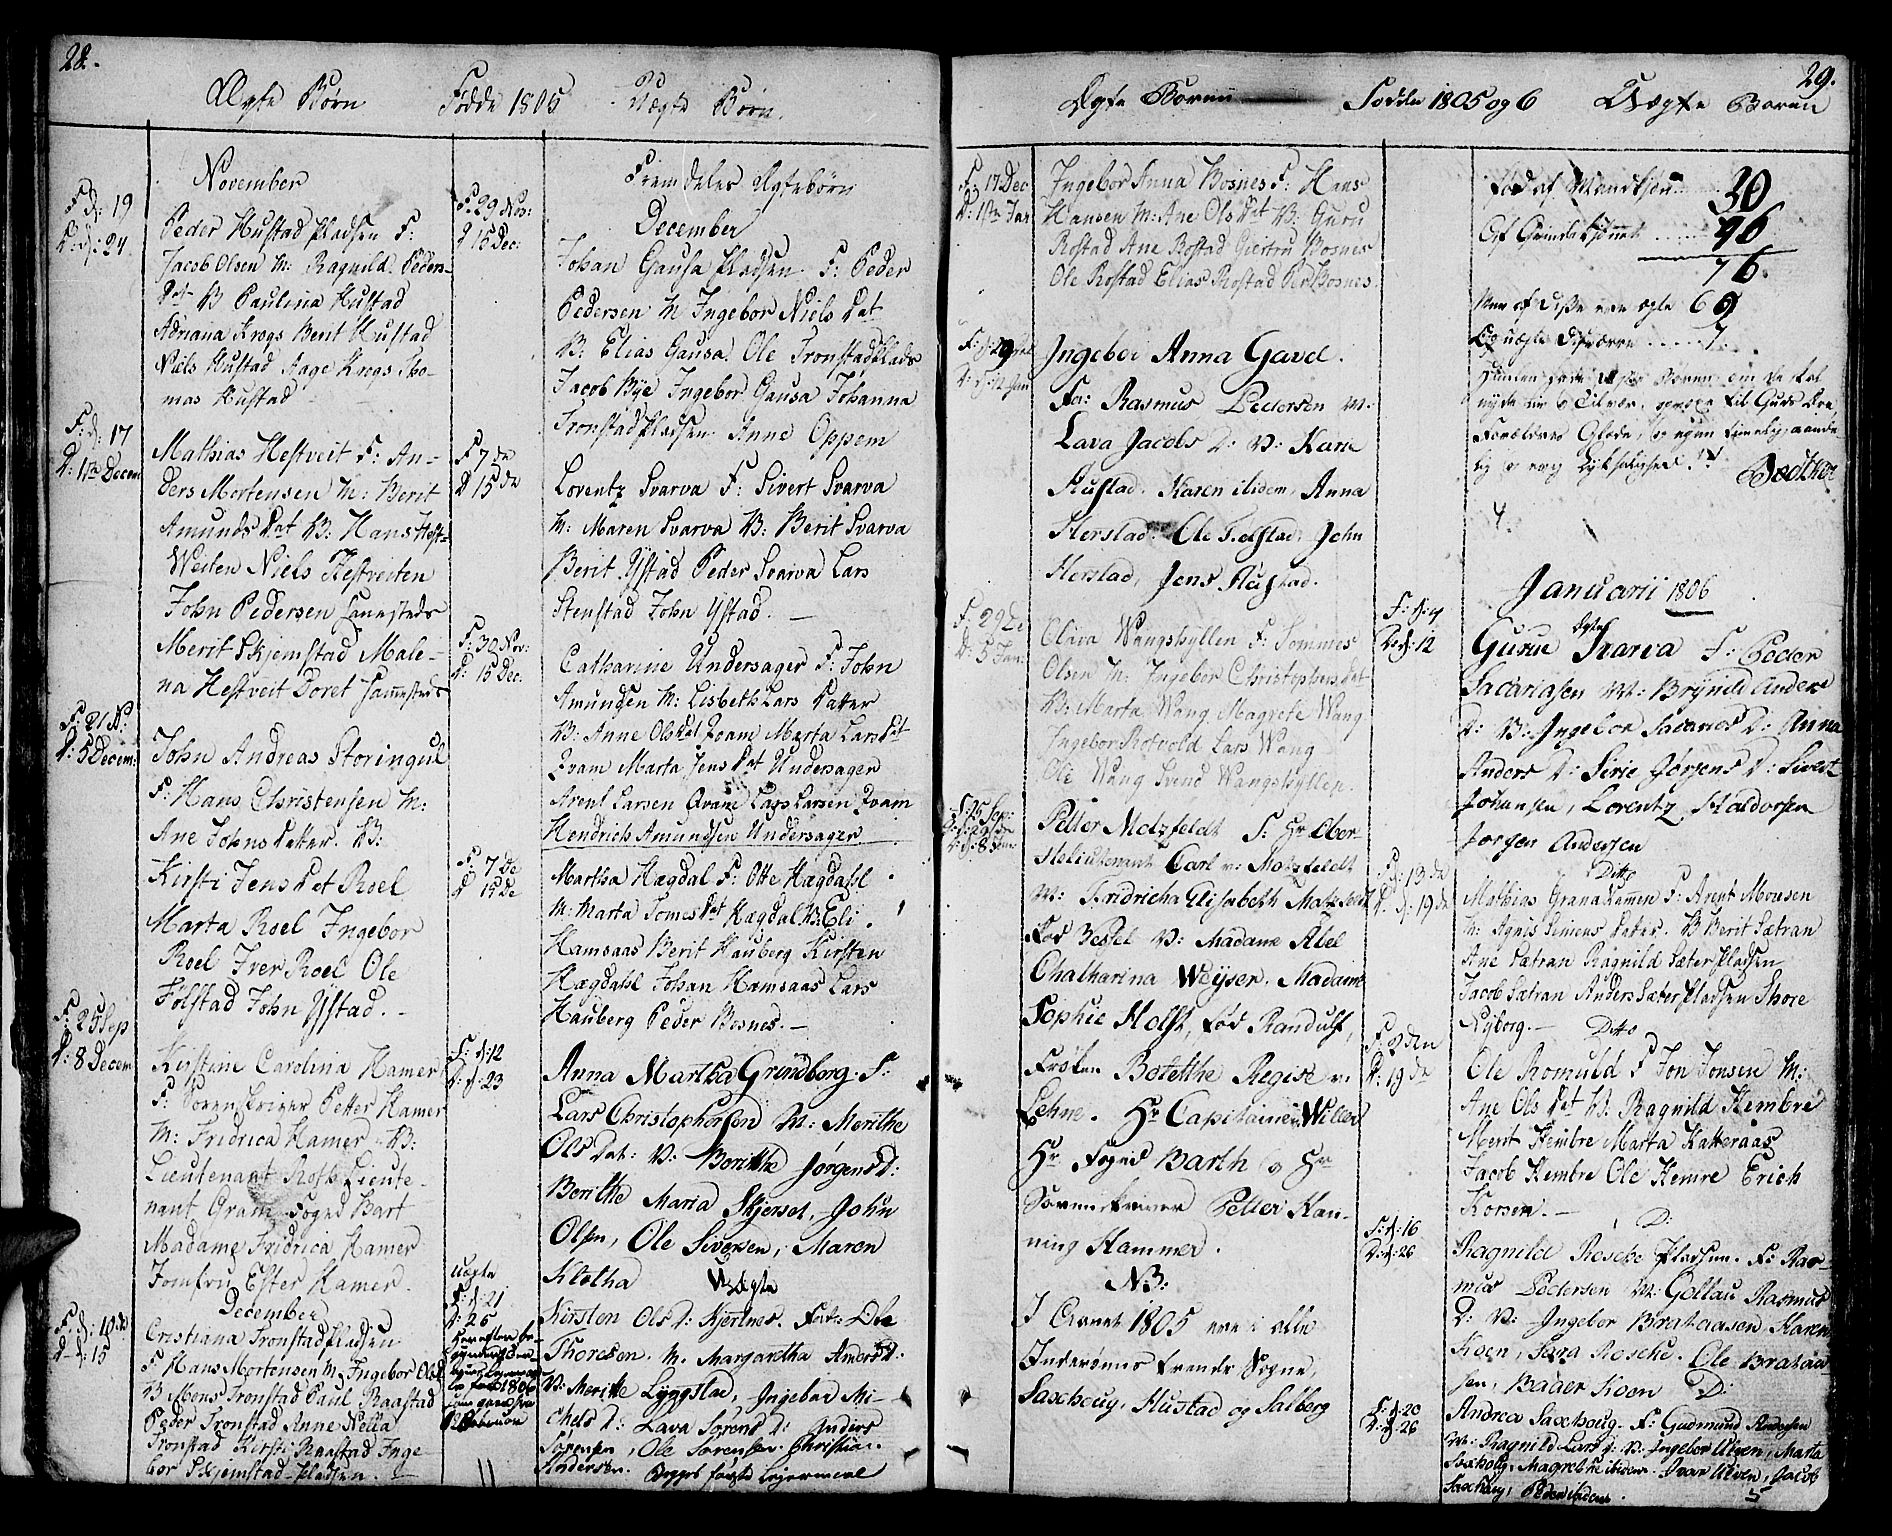 28.
Ægte Børn Fødde 1805 Uægte Børn.
November
F: d: 19
D: d: 24
Peder Hustad pladsen F:
Jacob Olsen M: Ragnild Peders-
dat V Paulina Hustad
Adriana Krogs Berit Hustad
Niels Hustad Aage Krogs Tho-
mas Hustad
F: d: 17
D: 1ste Decem
Mathias Hestveit F: An-
ders Mortensen M: Berit
Amunds dat V: Hans Hest-
Weiten Niels Hestveiten
John Pedersen sammesteds
Merit Skjemstad Male-
na Hestveit Doret sammesteds
F: 21 N:
D: 5 Decem:
John Andreas Storingul
F: Hans Christensen M:
Ane Johns datter. V:
Kirsti Jens dat Roel
Marta Roel Ingebor
Roel Iver Roel Ole
Følstad John Ystad.
F: 25 Sep
D: 8 Decem
Kirstine Carolina Hamer
F: Sorenskriver Petter Hamer
M: Fridrica Hamer V:
Lieutenant Roth Lieute-
nant Gram Foged Bart
Madame Fridrica Hamer
Jomfru Ester Hamer.
December
F: d: 10 de
D d: 15
Cristiana Tronstadpladsen
F Hans Mortensen M: Ingebor Olsd
V Mons Tronstad Paul Raastad
Peder Tronstad Anne Nella
Tronstad Kirsti Raastad Inge
bor Skjemstad-pladsen.
Fremdeles Ægtebørn
December
F: 29 Nov:
D 15 Dec:
Johan Gausa pladsen F: Peder
Pedersen M Ingebor Niels dat
V: Elias Gausa Ole Tronstadplads
Jacob Bye Ingebor Gausa Johanna
Tronstadpladsen Anne Oppem
F 7 de
D 15 de
Lorentz Svarva F: Sivert Svarva
M: Maren Svarva V: Berit Svarva
Berit Ystad Peder Svarva Lars
Stenstad John Ystad.
F: 30 Nov:
D: 15 Dec.
Catharine Undersager F: John
Amundsen M: Lisbeth Lars datter
V: Anne Olsdat Qvam Marta Larsdat
Qvam Marta Jensdat Undersager
Arent Larsen Qvam Lars Larsen Qvam
Hendrich Amundsen Undersager.
F 7 De
D 15 De
Martha Hægdal F: Otte Hægdahl
M: Marta Tomesdat Hægdal V: Eli
Hamsaas Berit Hauberg Kirsten
Hægdahl Johan Hamsaas Lars
Hauberg Peder Bosnes.
F: d: 12
D: d: 23
Anna Martha Grindborg. F:
Lars Christophersen M: Merithe
Ols Dat: V: Berithe Jørgens D:
Berithe Maria Skjerset, John
Olsen, Ole Siversen, Maren
Kletha Uægte
uægte
F: d: 21
D: 26
Kirsten Ols D: Hjertnes. Fat: Ole
Thoresen. M. Margaretha Anders D.
V: Meritte Lyngstad, Ingebor Mi-
chels D: Lava Sørens D: Anders
Sørensen, Ole Sørensen. Christian
Andersen. Begges første Lejermaal
29.
Ægte Børen Fødde 1805 og 6 Uægte Børen
F: 17 Dec
D: 1ste Jan
Ingebor Anna Bosnes F: Hans
Hansen M: Ane Ols Dat V: Guru
Rostad Ane Rostad Giertru Bosnes
Ole Rostad Elias Rostad Per Bosnes.
F: d: 29
D: d: 12 Jan
Ingebor Anna Gavel.
Fa: Rasmus Pedersen M:
Lava Jacobs D: V: Karen
Hustad. Karen ibidem, Anna
Herstad. Ole John
Herstad, Jens Hustad.
F: 29 De
D: 5 Jan:
Olava Wangshyllen F: Tommes
Olsen M: Ingebor Christophersdat
V: Marta Wang Magrete Wang
Ingebor Rotvold Lars Wang
Ole Wang Svend Wangshyllen.
F: 15 Sep:
Petter Motzfeldt F: Hr Ober-
stelieutenant Carl v: Motzfeldt
M: Fridricha Elisabeth Motzfeldt
Fød V: Madame Abel
Chatharina Weyser. Madame
Sophie Holst, Fød Randulf,
Frøken Botelthe Regise v:
Lehne. Hr Capitaine v. Willer
Hr Foged Barth og Hr
Sorenskriver Petter Han-
ning Hammer.
NB:
I Aaret 1805 ere i alle
Inderøens trende Sogne,
Saxhoug, Hustad og Salberg
Fød af Mandkjøn 30
Af Qvindekjønnet 46
76
Men af disse ere ægte 69
og uægte desværre 7.
Gode, og egen timelig, aande
lig og evig Lyksalighed!
Bødtker
4.
Januarii 1806
ægte
F: d: 4
D: d: 12
Guru Svarva F: Peder
Sacariasen M: Brynild Anders
D: V: Ingebor Sacarias D: Anna
Anders D: Sirie Jørgens D: Sivert
Johansen, Lorentz Haldorsen
Jørgen Andersen
Ditto
F: 13 de
D: d: 19 de
Mathias Grana F: Arent Monsen
M: Agnis Simens datter. V Berit Sætran
Ane Sætran Ragnild Sæterpladsen
Jacob Sætran Anders Sæterpladsen Thore
Nyborg. Ditto
F: 2 den
D: 19 de
Ole Romuld F Jon Jonsen M:
Ane Ols dat V: Ragnild Hembre
Merit Hembre Marta Katteraas
Jacob Hembre Ole Hemre Erich
Korsen.
D:
F: d: 16
D: d: 26
Ragnild Resche Pladsen. F: Ras-
mus Pedersen M: Gollau Rasmus
D: V: Ingebor Brataasen Karen
Koen, Sara Resche. Ole Brataa
sen, Baaer Koen D:
F: d: 20
D: d: 26
Andrea Saxhoug. F: Gudmund Andersen
M: Ragnild Lars D: V: Ingebor Ulven, Marta
Saxhoug, Magrethe ibidem. Ivar Ulven, Jacob
Saxhoug, Peder ibidem.
5